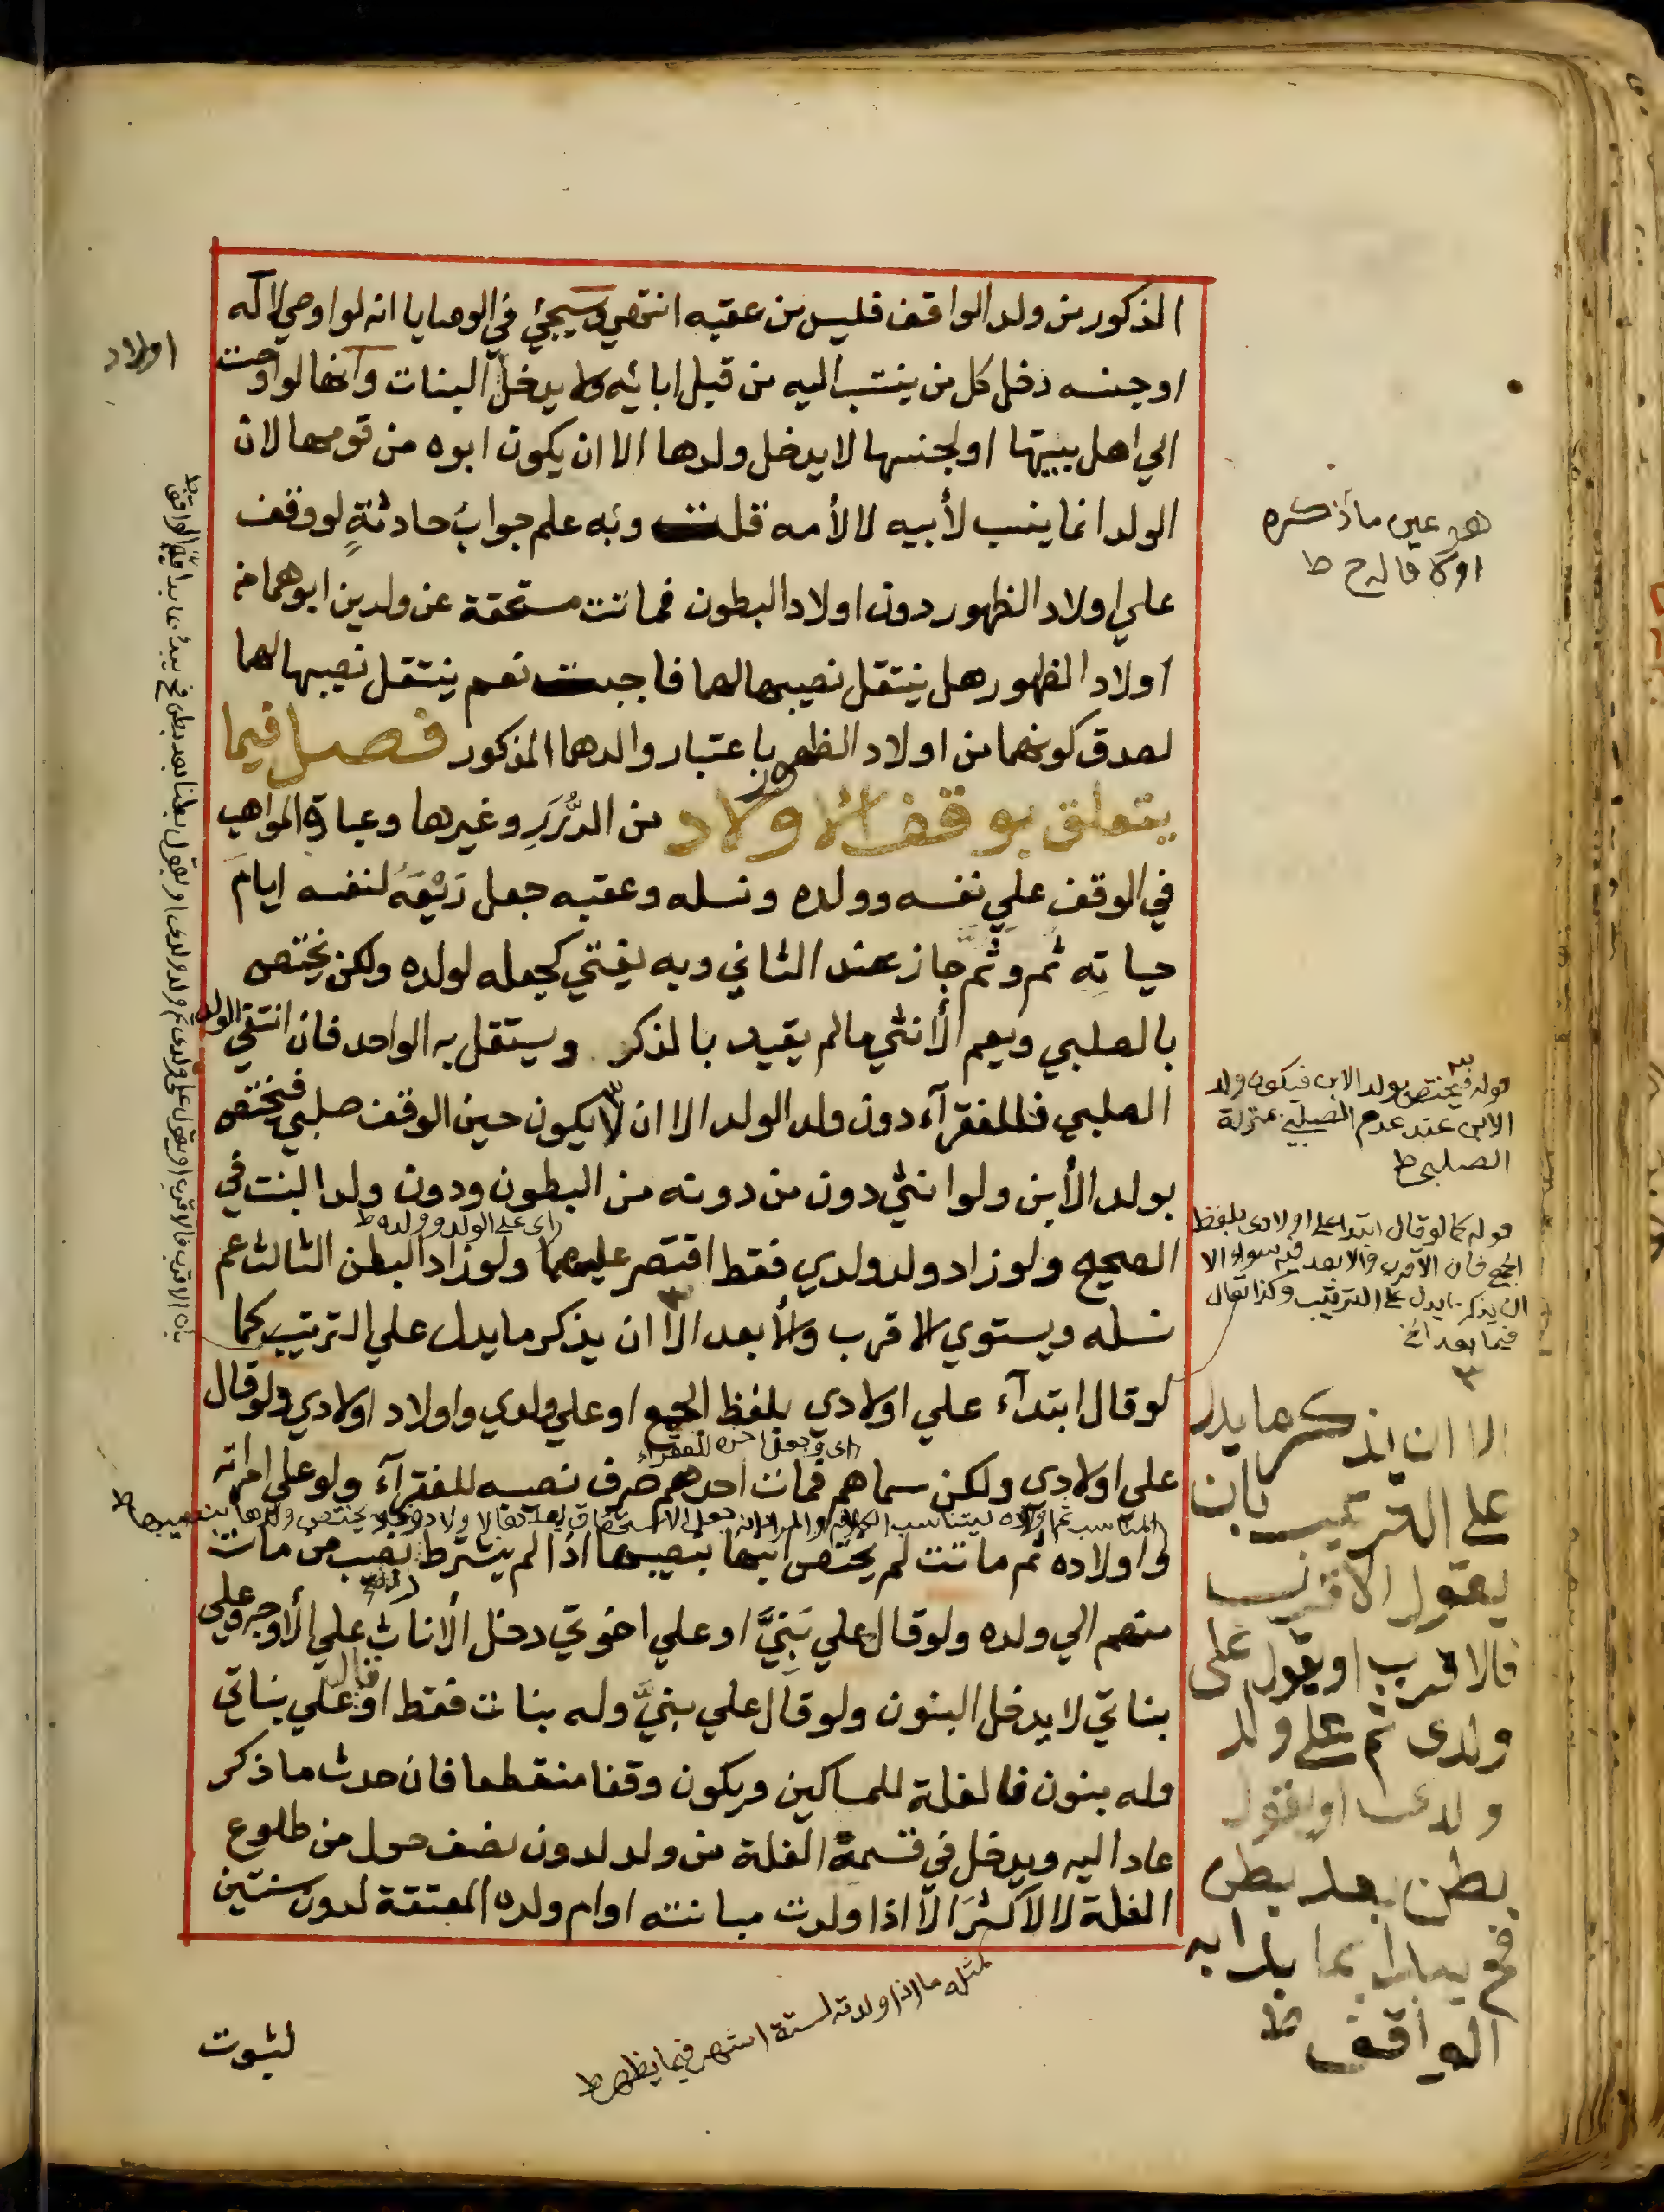 المذكور من ولد الواقف فليس من عقبه انتهي وسيجئ في الوصايا انه لو اوصي لاله
او جنسه دخل كل من ينتسب اليه من قبل ابائه ولا يدخل البنات وانها لو اوصت
الي اهل بيتها او لجنسها لا يدخل ولدها الا ان يكون ابوه من قومها لان
الولد انما ينسب لأبيه لا لأمه قلت وبه علم جواب حادثةٍ لو وقف
علي اولاد الظهور دون اولاد البطون فماتت مستحقة عن ولدين ابوهما من
اولاد الظهور هل ينتقل نصيبها لهما فاجبت نعم ينتقل نصيبها لهما
لصدق كونهما من اولاد الظهور باعتبار والدهما المذكور فصل فيما
يتعلق بوقف الاولاد من الدُّرَرِ وغيرها وعبارة المواهب
في الوقف علي نفسه وولده ونسله وعقبه جعل رَيْعَهُ لنفسه ايامَ
حياته ثم وثَمَّ جاز عند الثاني وبه يفتي كجعله لولده ولكن يختص
بالصلبي ويعم الأنثي مالم يقيد بالذكر ويستقل به الواحد فان انتفي الولد
الصلبي فللفقرآء دون ولد الولد الا ان لا يكون حين الوقف صلبي فيختص
بولد الأبن ولو انثي دون من دونه من البطون ودون ولد البنت في
اى على الولد وولده ط
الصحيح ولو زاد وولد ولدي فقط اقتصر عليهما ولو زاد البطن الثالث عم
نسله ويستوي الاقرب والأبعد الا ان يذكر ما يدل علي الترتيب كما
لو قال ابتدآء علي اولادي بلفظ الجمع او علي ولدي واولاد اولادي ولو قال
اى وجعل اخره للفقراء
علي اولادي ولكن سماهم فمات احدهم صرف نصيبه للفقرآء ولو علي امراته
واولاده ثم ماتت لم يختص ابنها بنصيبها اذا لم يشترط نصيب من مات
منهم الي ولده ولو قال علي بَنِيَّ او علي اخوتي دخل الأناث علي الأوجه وعلي
بناتي لا يدخل البنون ولو قال علي بنيَّ وله بنات فقط او قال علي بناتي
وله بنون فالغلة للمساكين ويكون وقفا منقطعا فان حدث ما ذكر
عاد اليه ويدخل في قسمة الغلة من ولد لدون نصف حول من طلوع
الغلة لا لأكثرَ الا اذا ولدت مبانته او ام ولده المعتقة لدون سنتين
مثله ما اذا ولدته لستة اشهر فيما يظهر ط
لثبوت
اولاد
هو عين ما ذكره
اولا قاله ح ط
قوله فيختص بولد الابن فيكون ولد
الابن عند عدم الصلبى بمنزلة
الصلبى ط
قوله كما لو قال ابتداء على اولادى بلفظ
الجمع فان الاقرب والابعد فيه سواء الا
ان يذكر ما يدل على الترتيب وكذا يقال
فيما بعد الخ
٣
الا ان يذكر ما يدل
على الترتيب بان
يقول الاقرب
فالاقرب او يقول على
ولدى ثم على ولد
ولدى او يقول
بطن بعد بطن
فح يبدا بما بدا به
الواقف ط